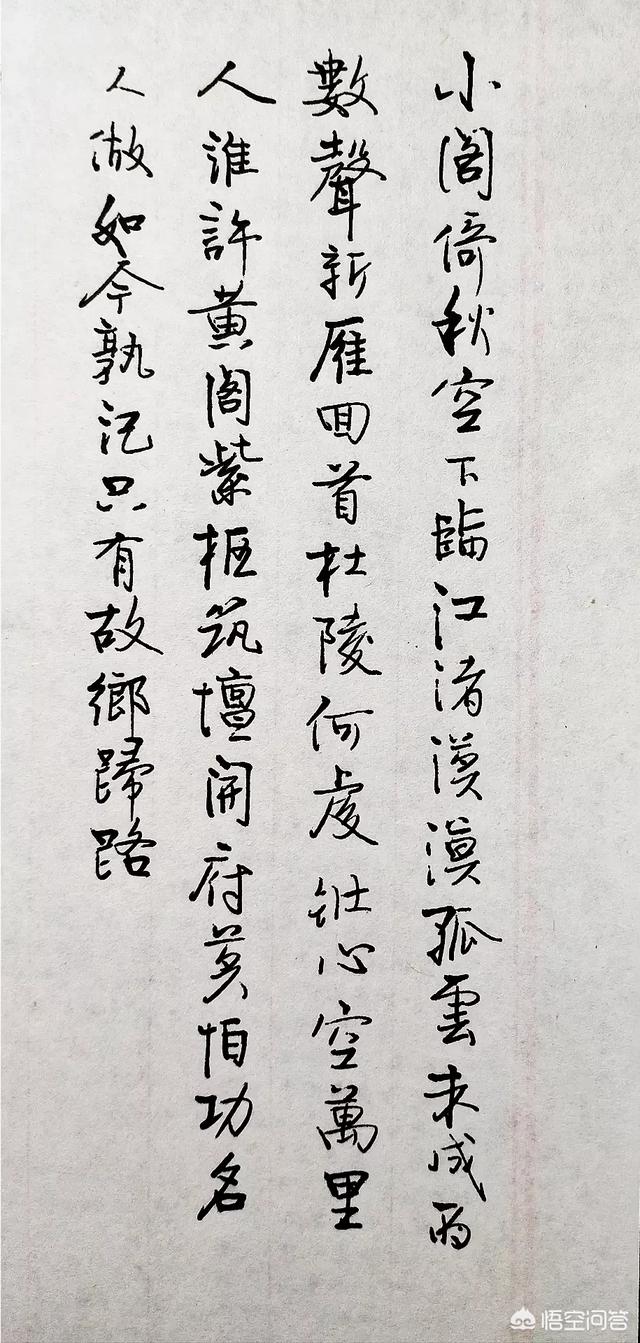 小閣倚秋空下臨江渚漠漠孤雲未成雨
數聲新雁回首杜陵何處壯心空萬里
人誰許黄閣紫樞筑壇開府莫怕功名
人做如今熟記只有故鄉歸路
悟空问答